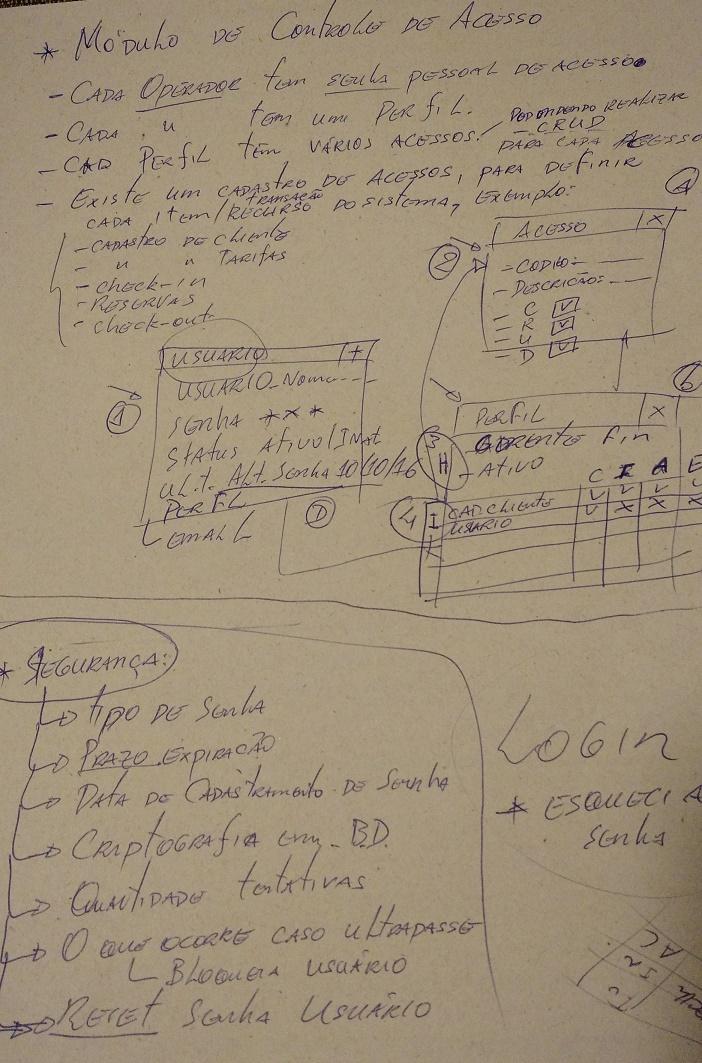 * MÓDULO DE CONTROLE DE ACESSO
- CADA OPERADOR tem senha PESSOAL DE ACESSO
- CADA " tem um PERFIL.
- CAD PERFIL têm VÁRIOS ACESSOS. / PODENDENDO REALIZAR
- CRUD
PARA CADA ACESSO
- EXISTE um CADASTRO DE ACESSOS, PARA DEFINIR
TRANSAÇÃO
CADA ITEM/RECURSO DO SISTEMA, EXEMPLO:
- CADASTRO DE CLIENTE
- " " TARIFAS
- CHECK-IN
- RESERVAS
- CHECK-OUT
a
2
ACESSO X
- CODIGO:
- DESCRIÇÃO:
- C V
- R V
- U V
- D V
1
USUARIO +
USUARIO_Nome
SENHA ***
STATUS ATIVO/INAT
ULT. ALT. SENHA 10/10/16
PERFIL
EMAIL
D
6
PERFIL X
GERENTE Fin
- ATIVO
3
H
C I A E
4
I
CAD CLIENTE V V V V
USUARIO V X X X
* SEGURANÇA:
TIPO DE SENHA
PRAZO EXPIRAÇÃO
DATA DE CADASTRAMENTO DE SENHA
CRIPTOGRAFIA em B.D.
QUANTIDADE TENTATIVAS
O QUE OCORRE CASO ULTRAPASSE
BLOQUEIA USUÁRIO
RESET SENHA USUÁRIO
LOGIN
* ESQUECI A
SENHA
AC